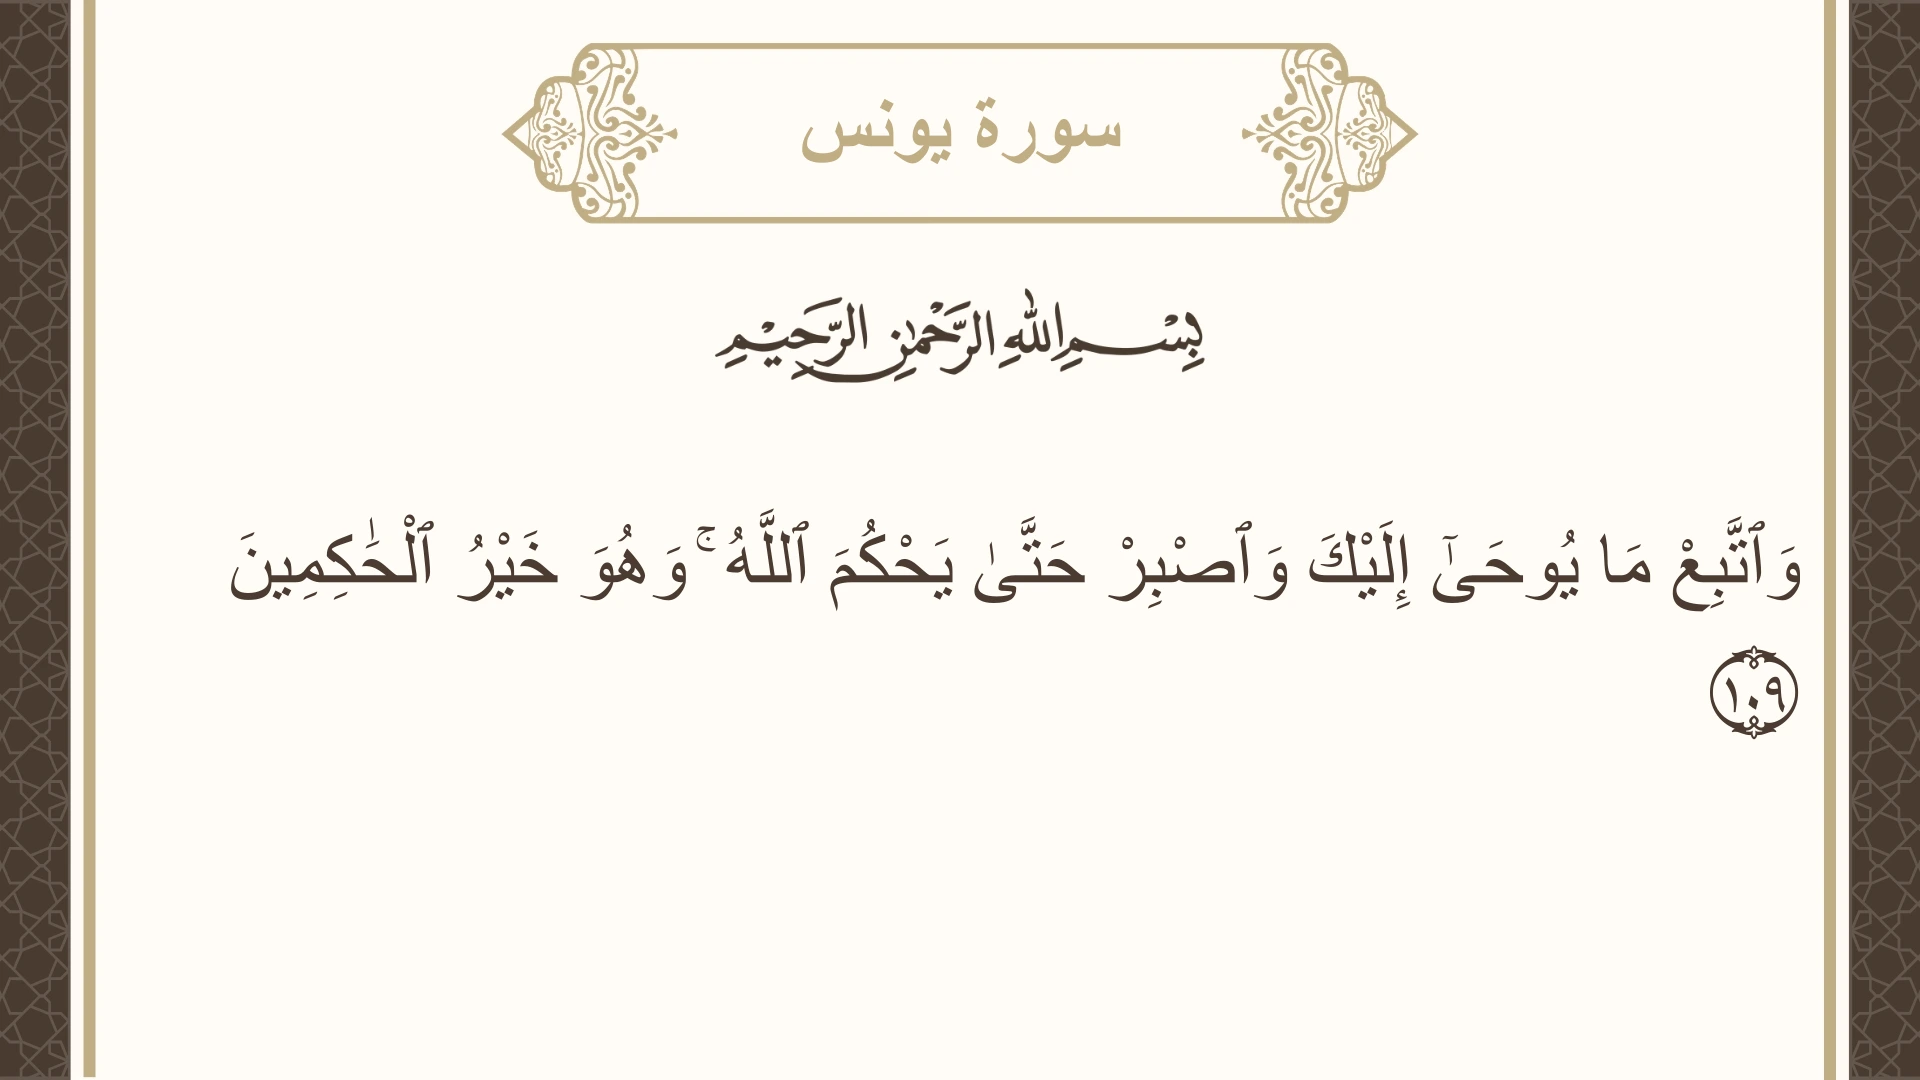 سورة يونس
بِسْمِ اللهِ الرَّحْمٰنِ الرَّحِيْمِ
وَٱتَّبِعْ مَا يُوحَىٰٓ إِلَيْكَ وَٱصْبِرْ حَتَّىٰ يَحْكُمَ ٱللَّهُ ۚ وَهُوَ خَيْرُ ٱلْحَٰكِمِينَ
١٠٩